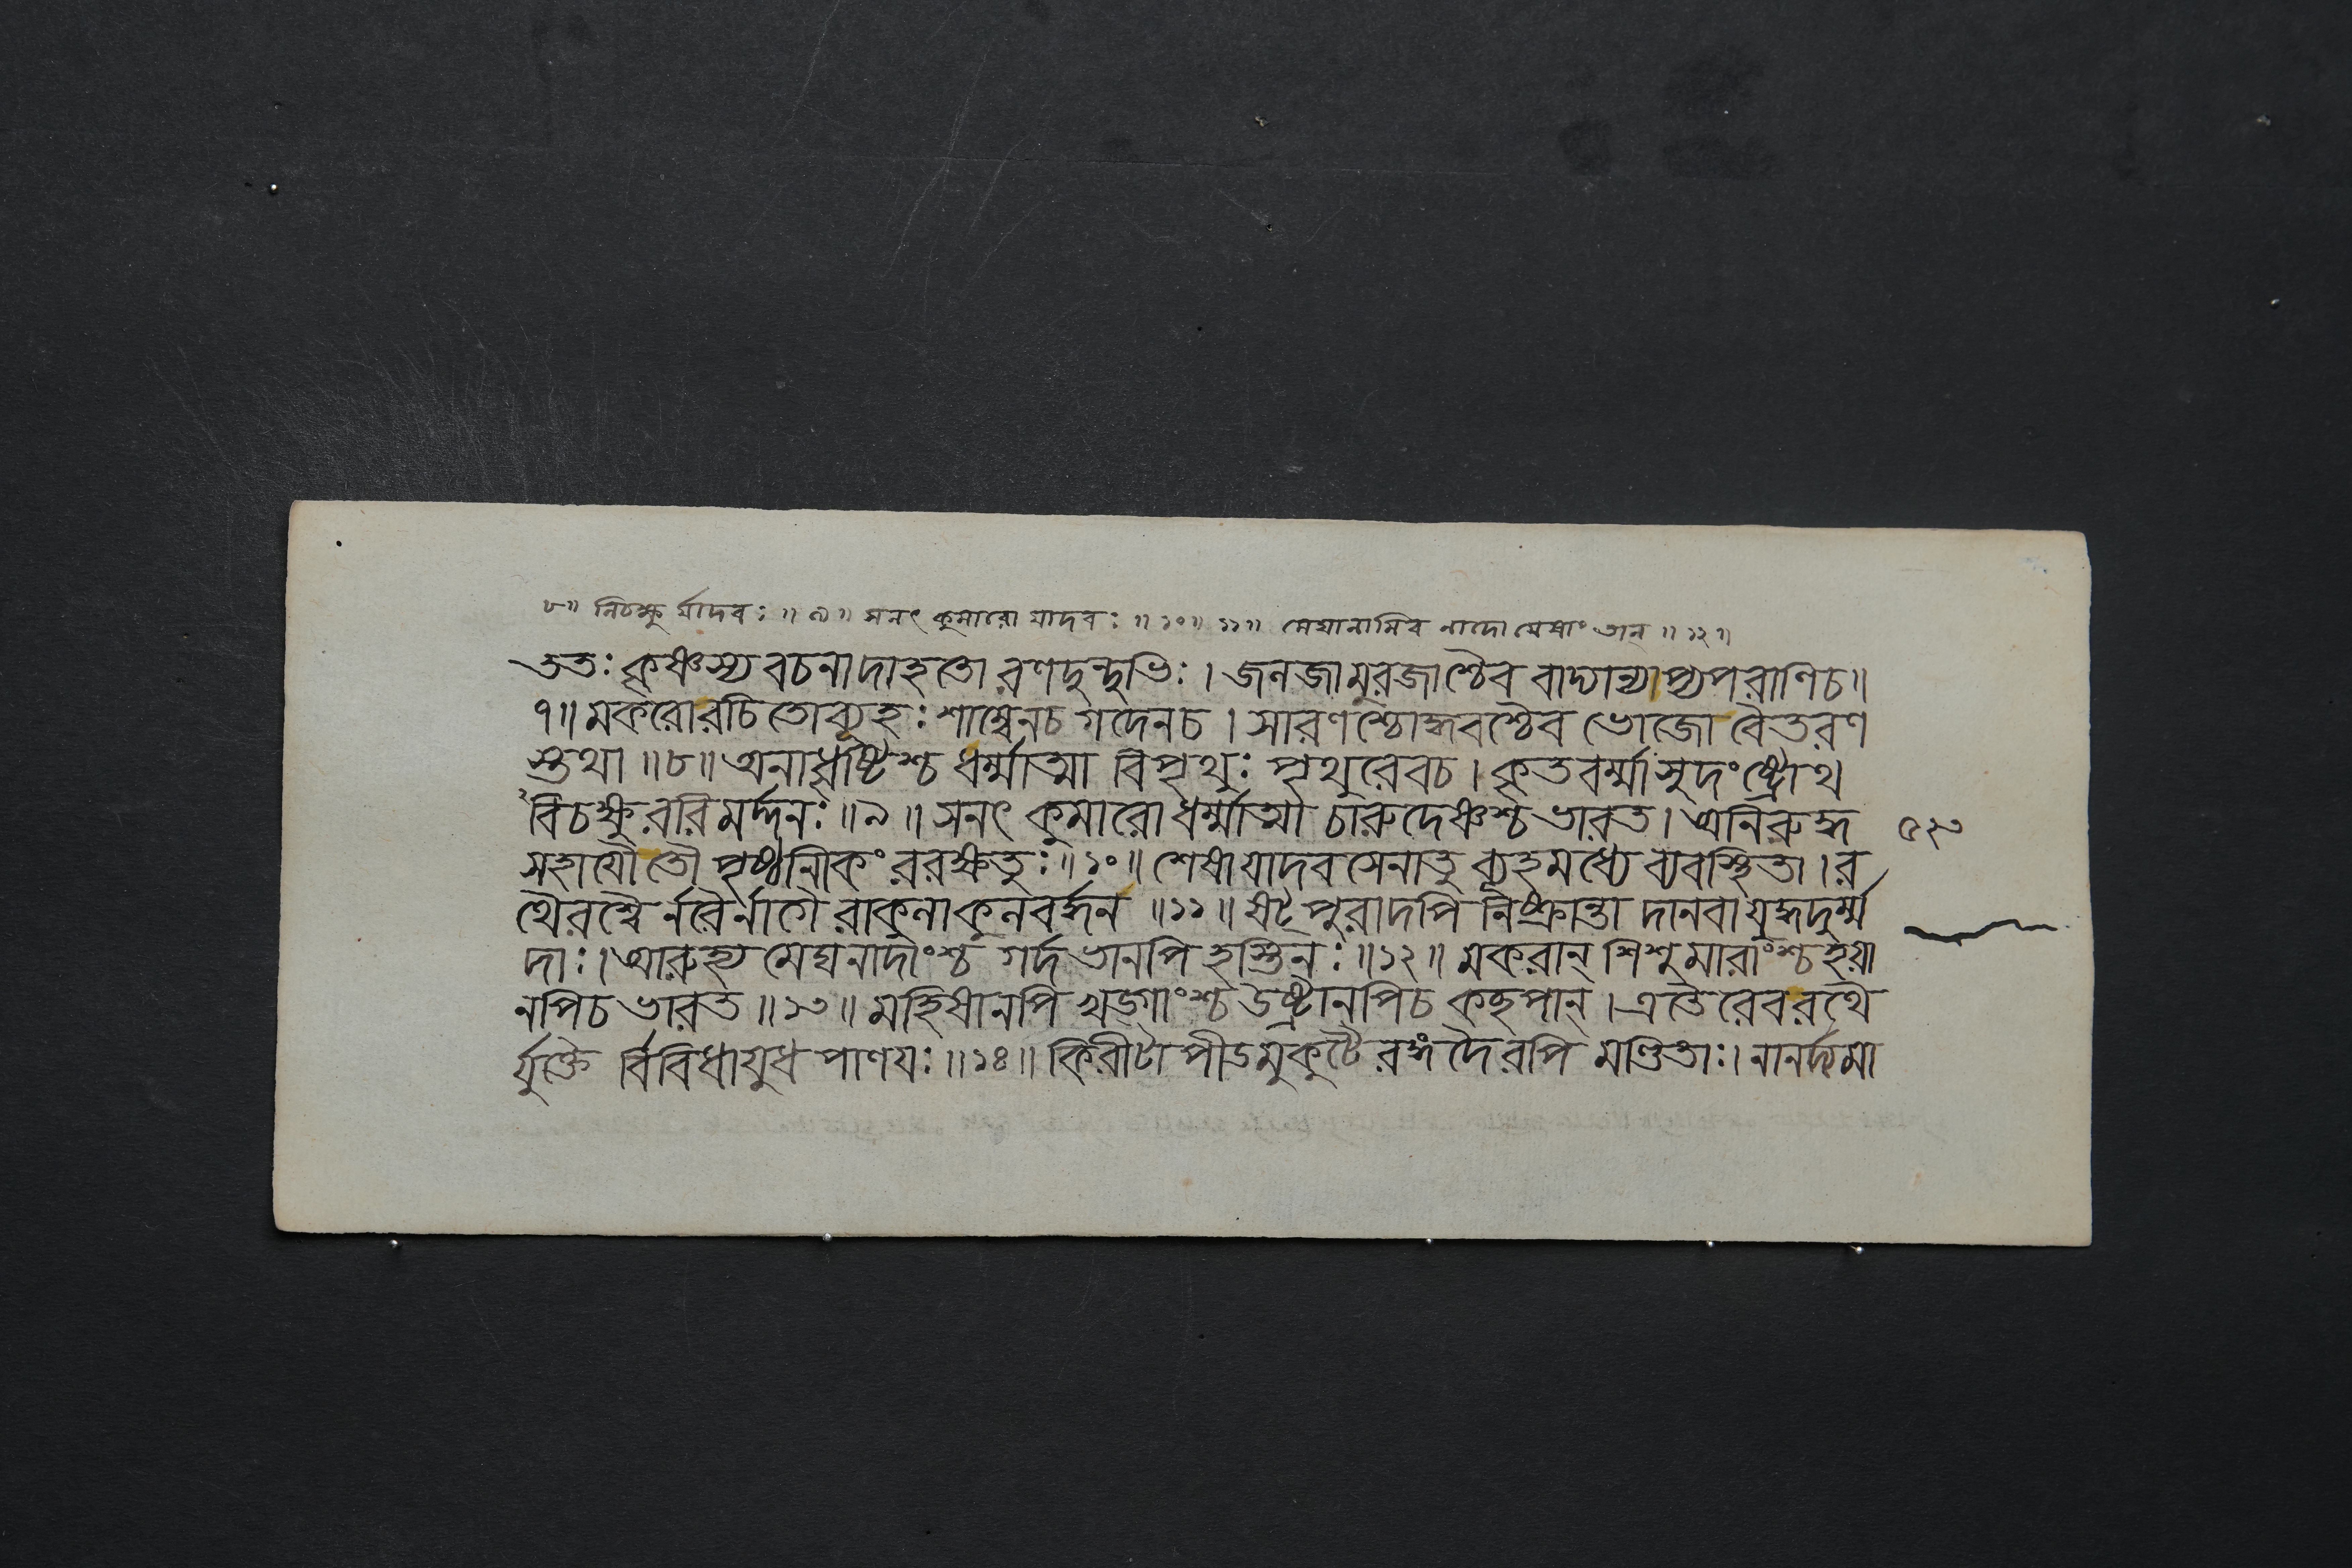 ৮॥ নিচক্ষু র্যাদবঃ ॥ ৯॥ সনৎ কুমারো যাদবঃ ॥ ১০॥ ১১॥ মেঘানামিব নাদো যেষাং তান্ ॥ ১২॥
ততঃ কৃষ্ণস্য বচনাদাহতো রণদুন্দুভিঃ । জনজা মুরজাশ্চৈব বাদ্যান্যাপ্যপরাণিচ॥
৭॥ মকরোরচিতোব্যূহঃ শাম্বেনচ গদেনচ । সারণশ্চোদ্ধবশ্চৈব ভোজো বৈতরণ
স্তথা ॥৮॥ অনাধৃষ্টিশ্চ ধর্ম্মাত্মা বিপৃথুঃ পৃথুরেবচ । কৃতবর্ম্মা সুদংষ্ট্রোথ
বিচক্ষুররিমর্দ্দনঃ ॥৯॥ সনৎ কুমারো ধর্ম্মাত্মা চারুদেষ্ণশ্চ ভারত । অনিরুদ্ধ
৫২৩
সহাযৌ তৌ পৃষ্ঠানিকং ররক্ষতুঃ ॥১০॥ শেষা যাদবসেনাতু ব্যূহমধ্যে ব্যবস্থিতা । র
থৈরশ্বৈ র্নরৈর্নাগৈ রাকুনাকুনবর্দ্ধন ॥১১॥ ষট্পুরাদপি নিষ্ক্রান্তা দানবা যুদ্ধদুর্ম্ম
দাঃ । আরুহ্য মেঘনাদাংশ্চ গর্দভানপি হস্তিনঃ ॥১২॥ মকরান্ শিশুমারাংশ্চ হয়া
নপিচ ভারত ॥১৩॥ মহিষানপি খড্গাংশ্চ উষ্ট্রানপিচ কচ্ছপান্ । এতৈরেব রথৈ
র্যুক্তৈ র্বিবিধাযুধ পাণযঃ ॥১৪॥ কিরীটা পীডমুকুটৈ রঙ্গদৈরপি মণ্ডিতাঃ । নানর্দ্দমা